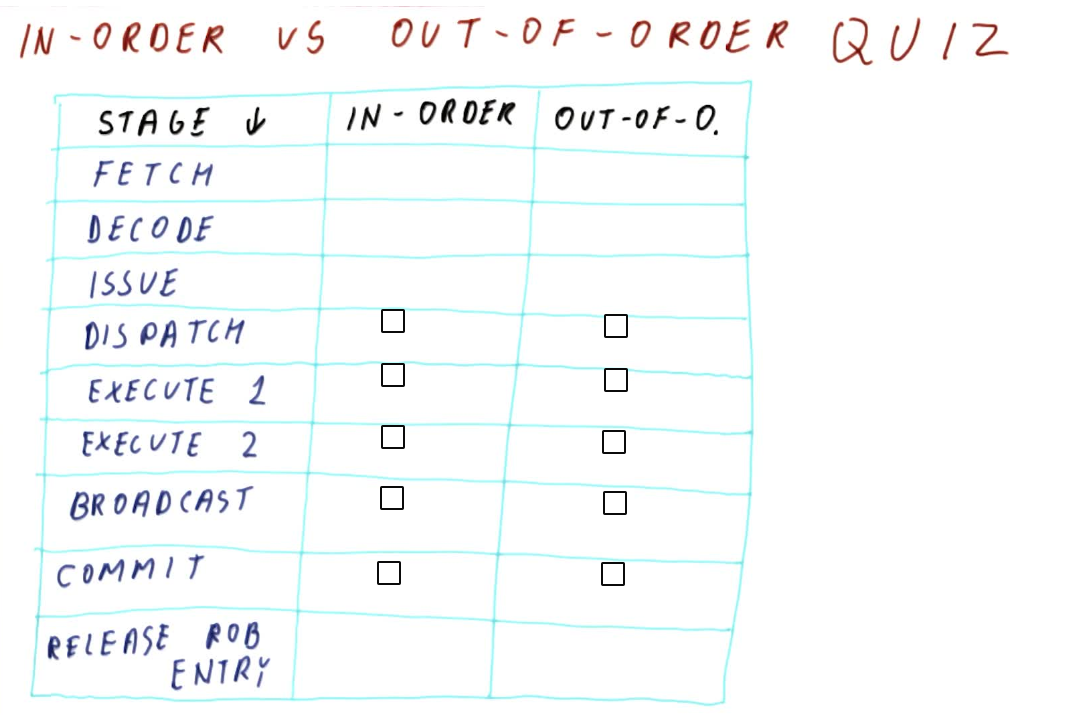 IN-ORDER VS OUT-OF-ORDER QUIZ
STAGE ↓ IN-ORDER OUT-OF-O.
FETCH
DECODE
ISSUE
DISPATCH
EXECUTE 1
EXECUTE 2
BROADCAST
COMMIT
RELEASE ROB
ENTRY